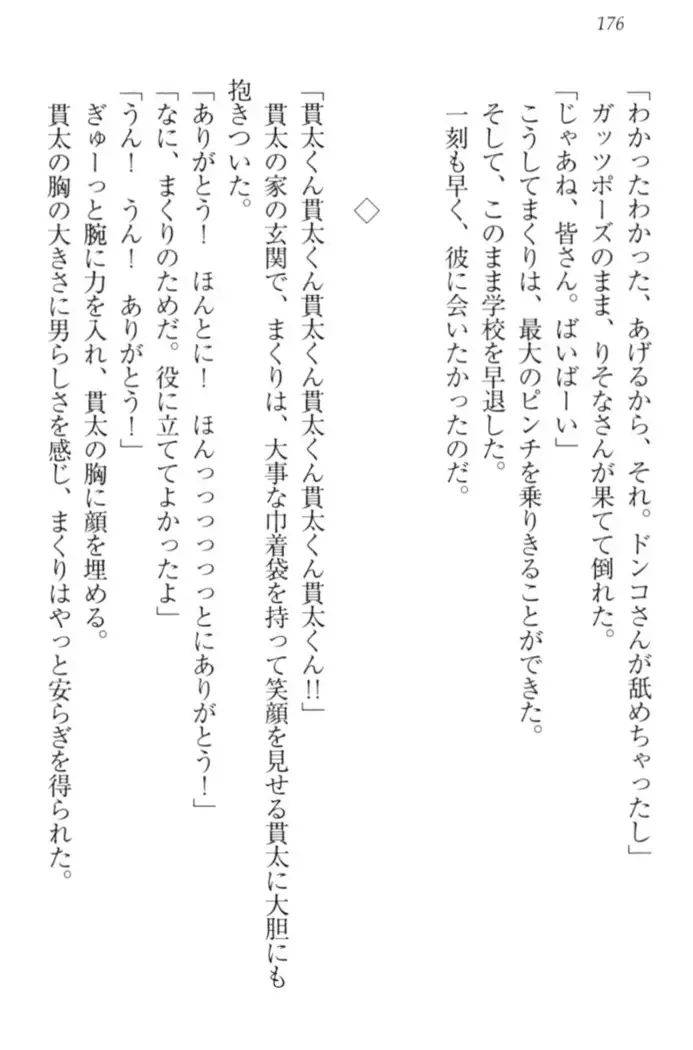 176
「わかったわかった、あげるから、それ。ドンコさんが舐めちゃったし」
ガッツポーズのまま、りそなさんが果てて倒れた。
「じゃあね、皆さん。ばいばーい」
こうしてまくりは、最大のピンチを乗りきることができた。
そして、このまま学校を早退した。
一刻も早く、彼に会いたかったのだ。
◇
「貫太くん貫太くん貫太くん貫太くん貫太くん!!」
貫太の家の玄関で、まくりは、大事な巾着袋を持って笑顔を見せる貫太に大胆にも
抱きついた。
「ありがとう！　ほんとに！　ほんっっっっっっとにありがとう！」
「なに、まくりのためだ。役に立ててよかったよ」
「うん！　うん！　ありがとう！」
ぎゅーっと腕に力を入れ、貫太の胸に顔を埋める。
貫太の胸の大きさに男らしさを感じ、まくりはやっと安らぎを得られた。